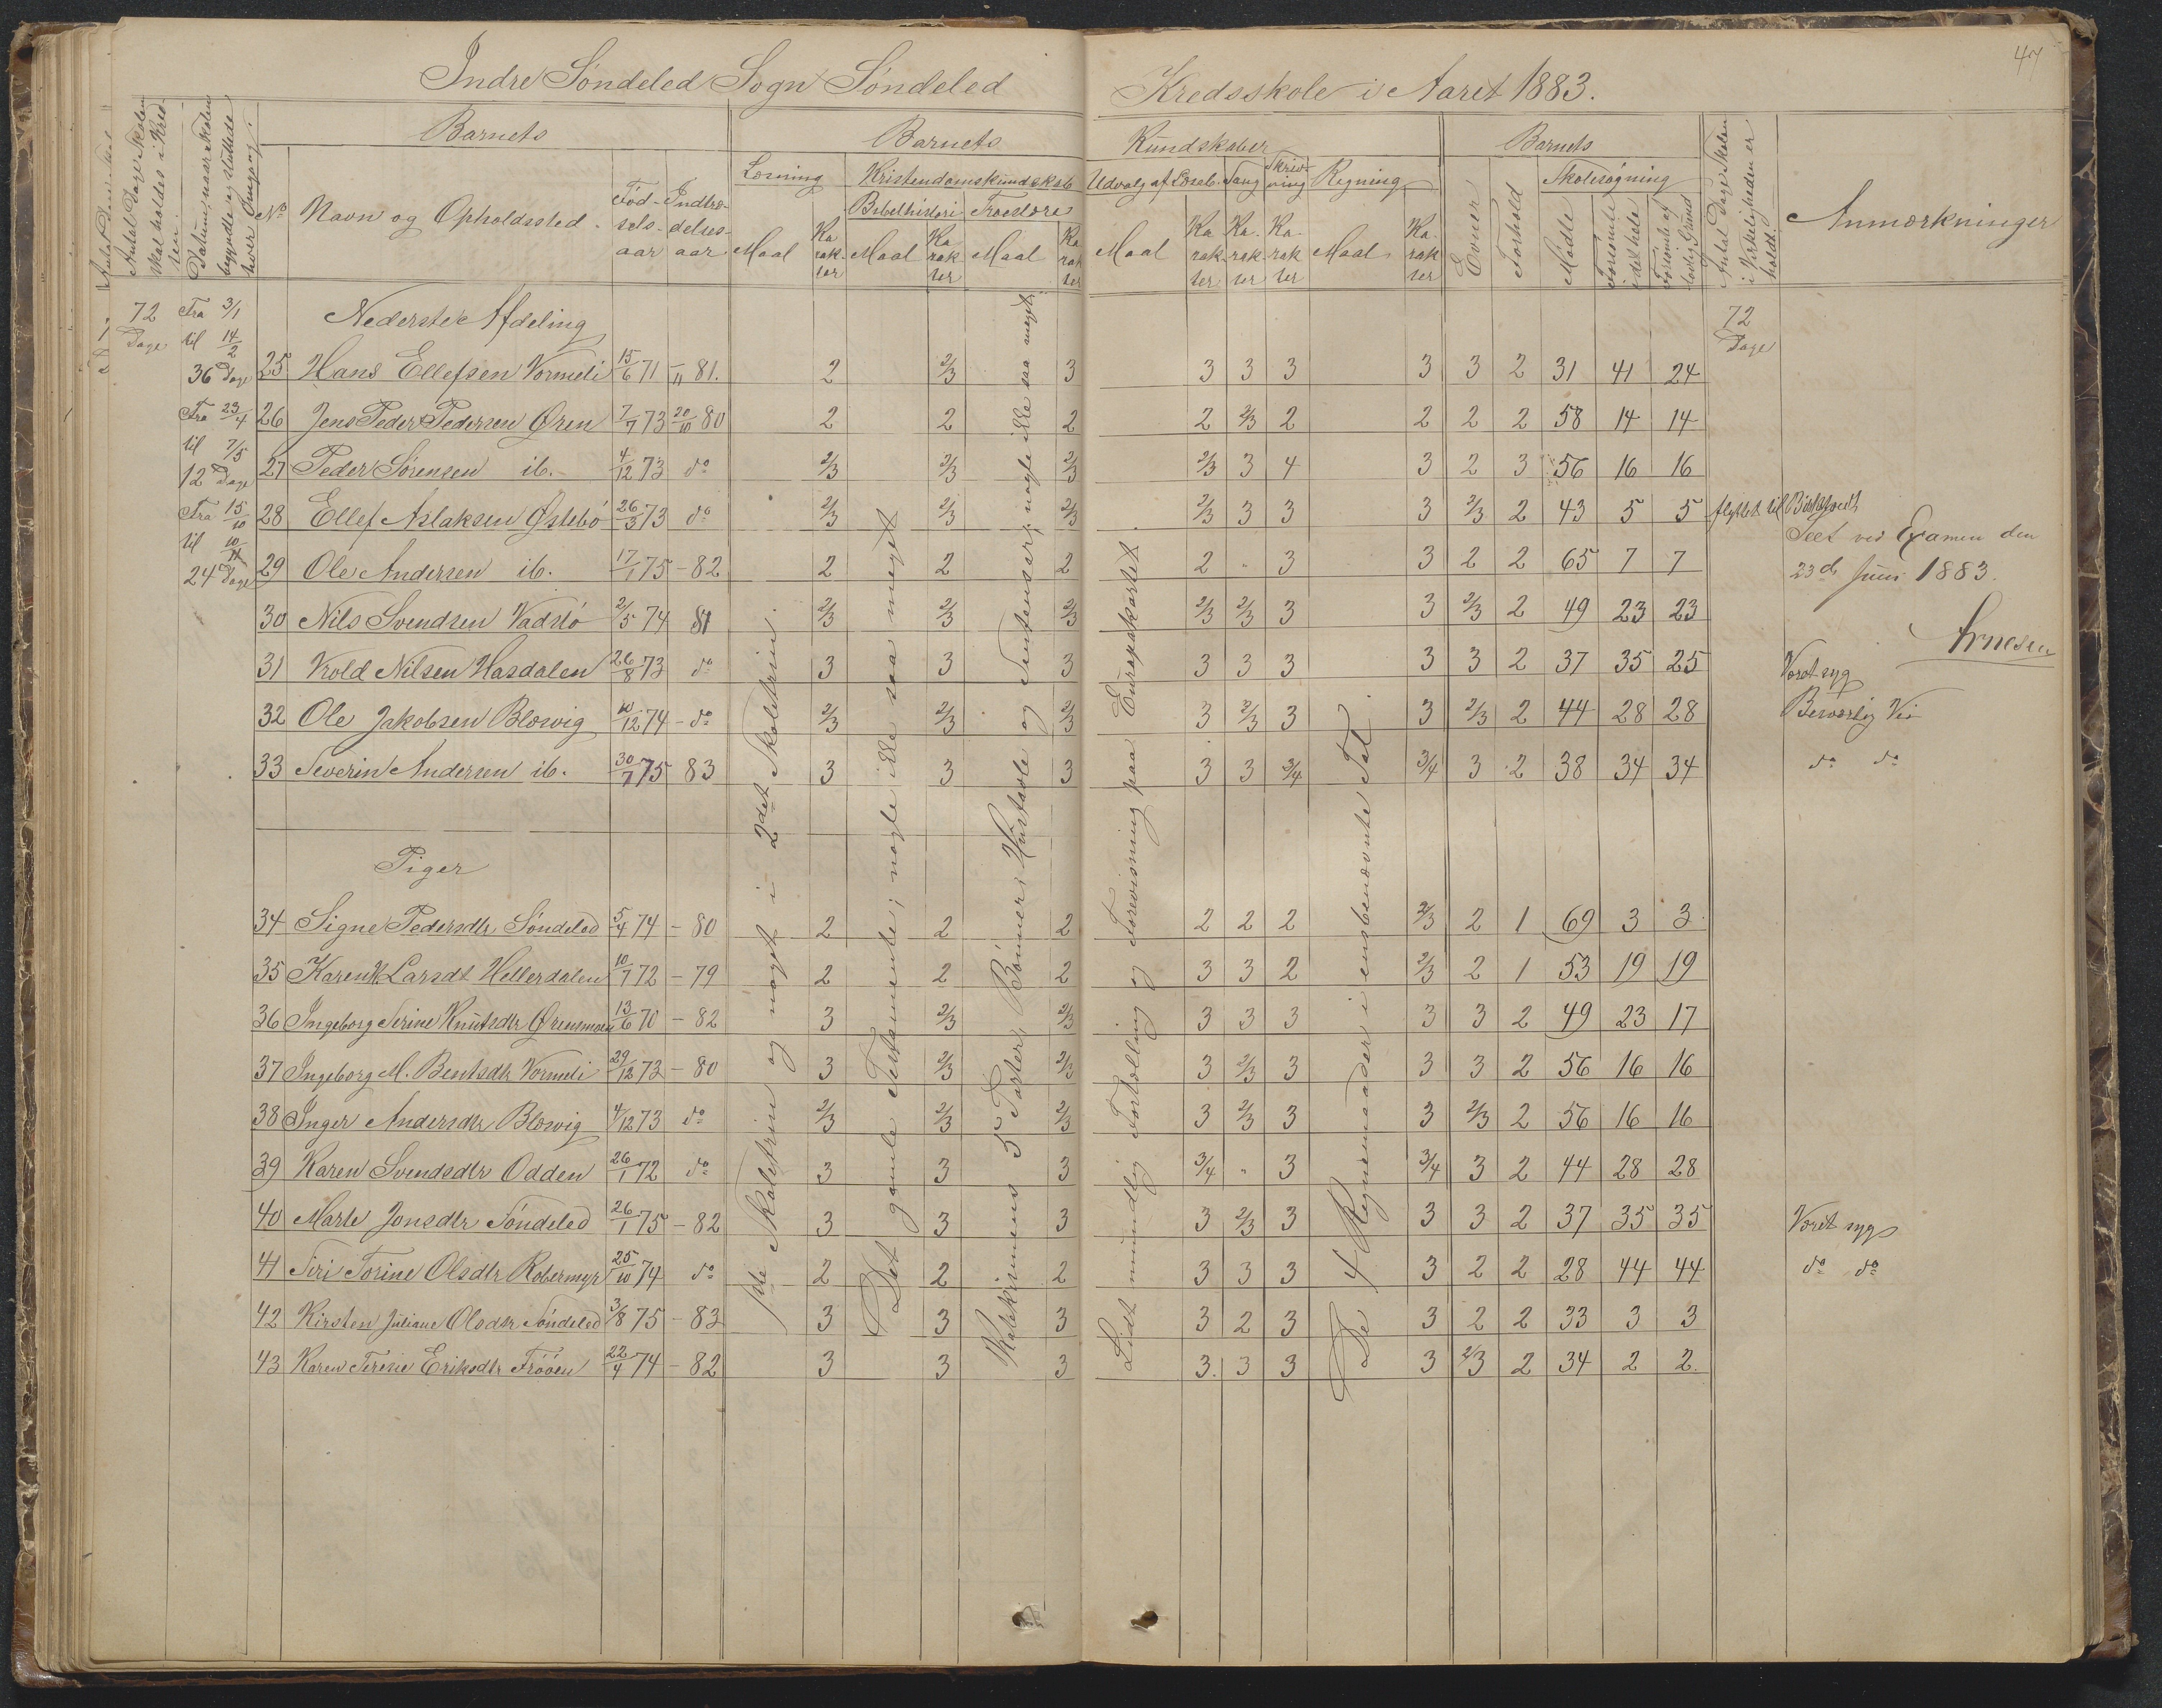 47
Indre Söndeled Sogn Söndeled Kredsskole i Aaret 1883.
Antal Dage Skolen skal holdes i Kredsen
Datum, naar Skolen begyndte og sluttede hver Omgang.
No
Barnets
Navn og Opholdssted.
Fødselsaar
Indtrædelsesaar
Barnets Kundskaber
Læsning
Maal
Karakter
Kristendomskundskab
Bibelhistorie
Maal
Karakter
Troeslære
Maal
Karakter
Udvalg af Læseb.
Maal
Karakter
Sang
Karakter
Skrivning
Karakter
Regning
Maal
Karakter
Barnets
Evner
Forhold
Skolesøgning
Mødte
Forsømte i det hele
Forsømte af lovlig Grund
Antal Dage Skolen i Virkeligheden er holdt
Anmærkninger
72 Dage
Fra 3/1 til 14/2 36 Dage
Fra 23/4 til 7/5 12 Dage
Fra 15/10 til 10/11 24 Dage
72 Dage
Nederste Afdeling
25 Hans Ellefsen Vormeli 15/6 71 – 11 81. 2 2/3 3 3 3 3 3 3 2 31 41 24
26 Jens Peder Pedersen Øren 7/7 73 20/10 80 2 2 2 2 2/3 2 2 2 2 58 14 14
27 Peder Sørensen ib. 4/12 73 do 2/3 2/3 2/3 2/3 3 4 3 2 3 56 16 16
28 Ellef Aslaksen Østebö 26/3 73 do 2/3 2/3 2/3 2/3 3 3 3 2/3 2 43 5 5 flyttet til
29 Ole Andersen ib. 17/1 75 – 82 2 2 2 2 " 3 3 2 2 65 7 7
30 Nils Svendsen Vadslö 2/5 74 81 2/3 2/3 2/3 2/3 2/3 3 3 2/3 2 49 23 23
31 Vrold Nilsen Hasdalen 26/8 73 do 3 3 3 3 3 3 3 3 2 37 35 25 Været syg
32 Ole Jakobsen Blæsvig 10/12 74 – do 2/3 2/3 2/3 3 2/3 3 3 2/3 2 44 28 28 Besværlig Vei
33 Severin Andersen ib. 30/7 75 83 3 3 3 3 3 3/4 3/4 3 2 38 34 34 do do
Seet ved Examen den
23d Juni 1883.
Arnesen
Piger
34 Signe Pedersdtr Söndeled 5/4 74 – 80 2 2 2 2 2 2 2/3 2 1 69 3 3
35 Karen H. Larsdt Hellerdalen 10/7 72 – 79 2 2 2 3 3 2 2/3 2 1 53 19 19
36 Ingeborg Serine Knutsdtr Ørensmoen 13/6 70 – 82 3 2/3 2/3 3 3 3 3 3 2 49 23 17
37 Ingeborg M. Bentsdtr Vormeli 29/12 73 – 80 3 2/3 2/3 3 2/3 3 3 3 2 56 16 16
38 Inger Andersdtr Blæsvig 4/12 73 do 2/3 2/3 2/3 3 2/3 3 3 2/3 2 56 16 16
39 Karen Svendsdtr Odden 26/1 72 do 3 3 3 3/4 " 3 3/4 3 2 44 28 28
40 Marte Jonsdtr Söndeled 26/1 75 – 82 3 3 3 3 2/3 3 3 3 2 37 35 35 Været syg
41 Siri Torine Olsdtr Robermyr 25/10 74 do 2 2 2 3 3 3 3 2 2 28 44 44 do do
42 Kirsten Juliane Olsdtr Söndeled 3/8 75 – 83 3 3 3 3 2 3 3 2 2 33 3 3
43 Karen Terese Eriksdtr Fröóen 22/4 74 – 82 3 3 3 3. 3 3 3 2/3 2 34 2 2.
1ste Skoletrin og noget i 2det Skoletrin.
Det gamle Testamente; nogle ikke saa meget
Katekismens 5 Parter, Bönner, Hustavle og Sentenser; nogle ikke saa meget.
Lidt mundtlig Fortælling og Forevisning paa Europakartet
De 4 Regnemaader i ensbenævnte Tal.